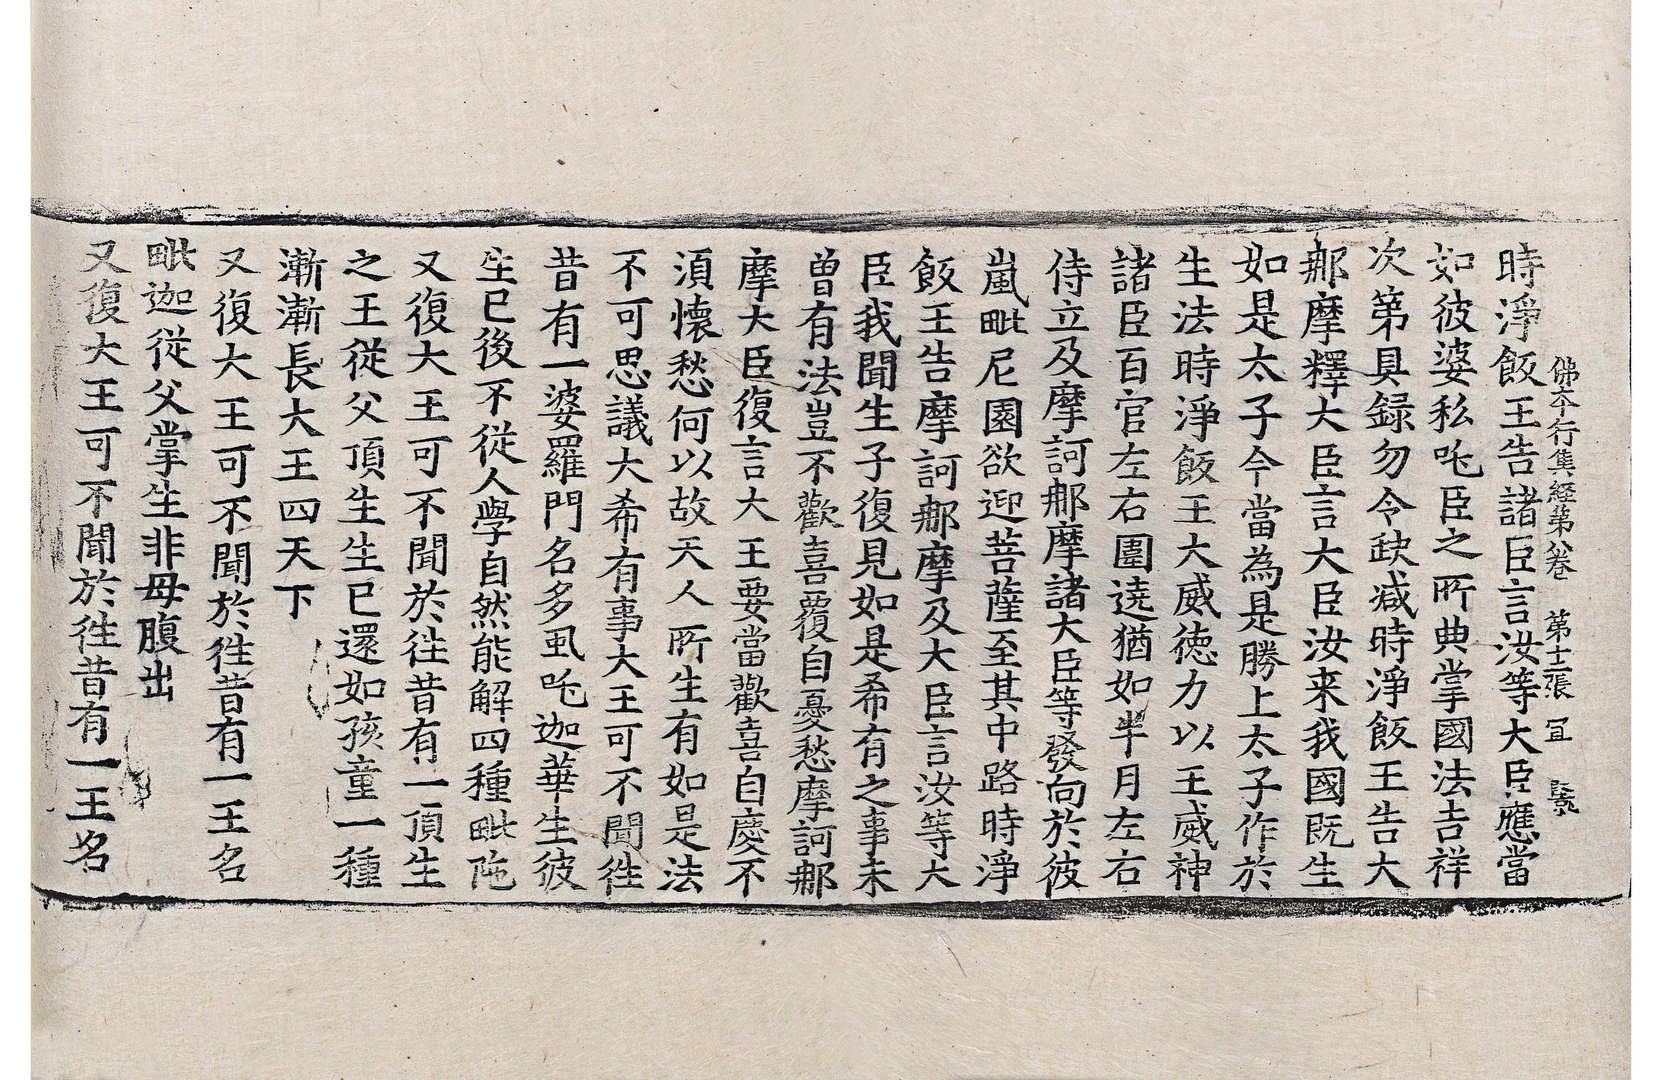 佛夲行集経第八卷 第十二張 冝
時淨飯王告諸臣言汝等大臣應當
如彼婆私吒臣之所典掌國法吉祥
次第具録勿令缺减時淨飯王告大
那摩釋大臣言大臣汝来我國既生
如是太子今當為是勝上太子作於
生法時淨飯王大威徳力以王威神
諸臣百官左右圍遶猶如半月左右
侍立及摩訶那摩諸大臣等發向於彼
嵐毗尼園欲迎菩薩至其中路時淨
飯王告摩訶那摩及大臣言汝等大
臣我聞生子復見如是希有之事未
曽有法豈不歡喜覆自憂愁摩訶那
摩大臣復言大王要當歡喜自慶不
湏懷愁何以故天人所生有如是法
不可思議大希有事大王可不聞徃
昔有一婆羅門名多虱吒迦華生彼
生已後不從人學自然能解四種毗陁
又復大王可不聞於徃昔有一頂生
之王從父頂生生已還如孩童一種
漸漸長大王四天下
又復大王可不聞於徃昔有一王名
毗迦從父掌生非母腹出
又復大王可不聞於徃昔有一王名